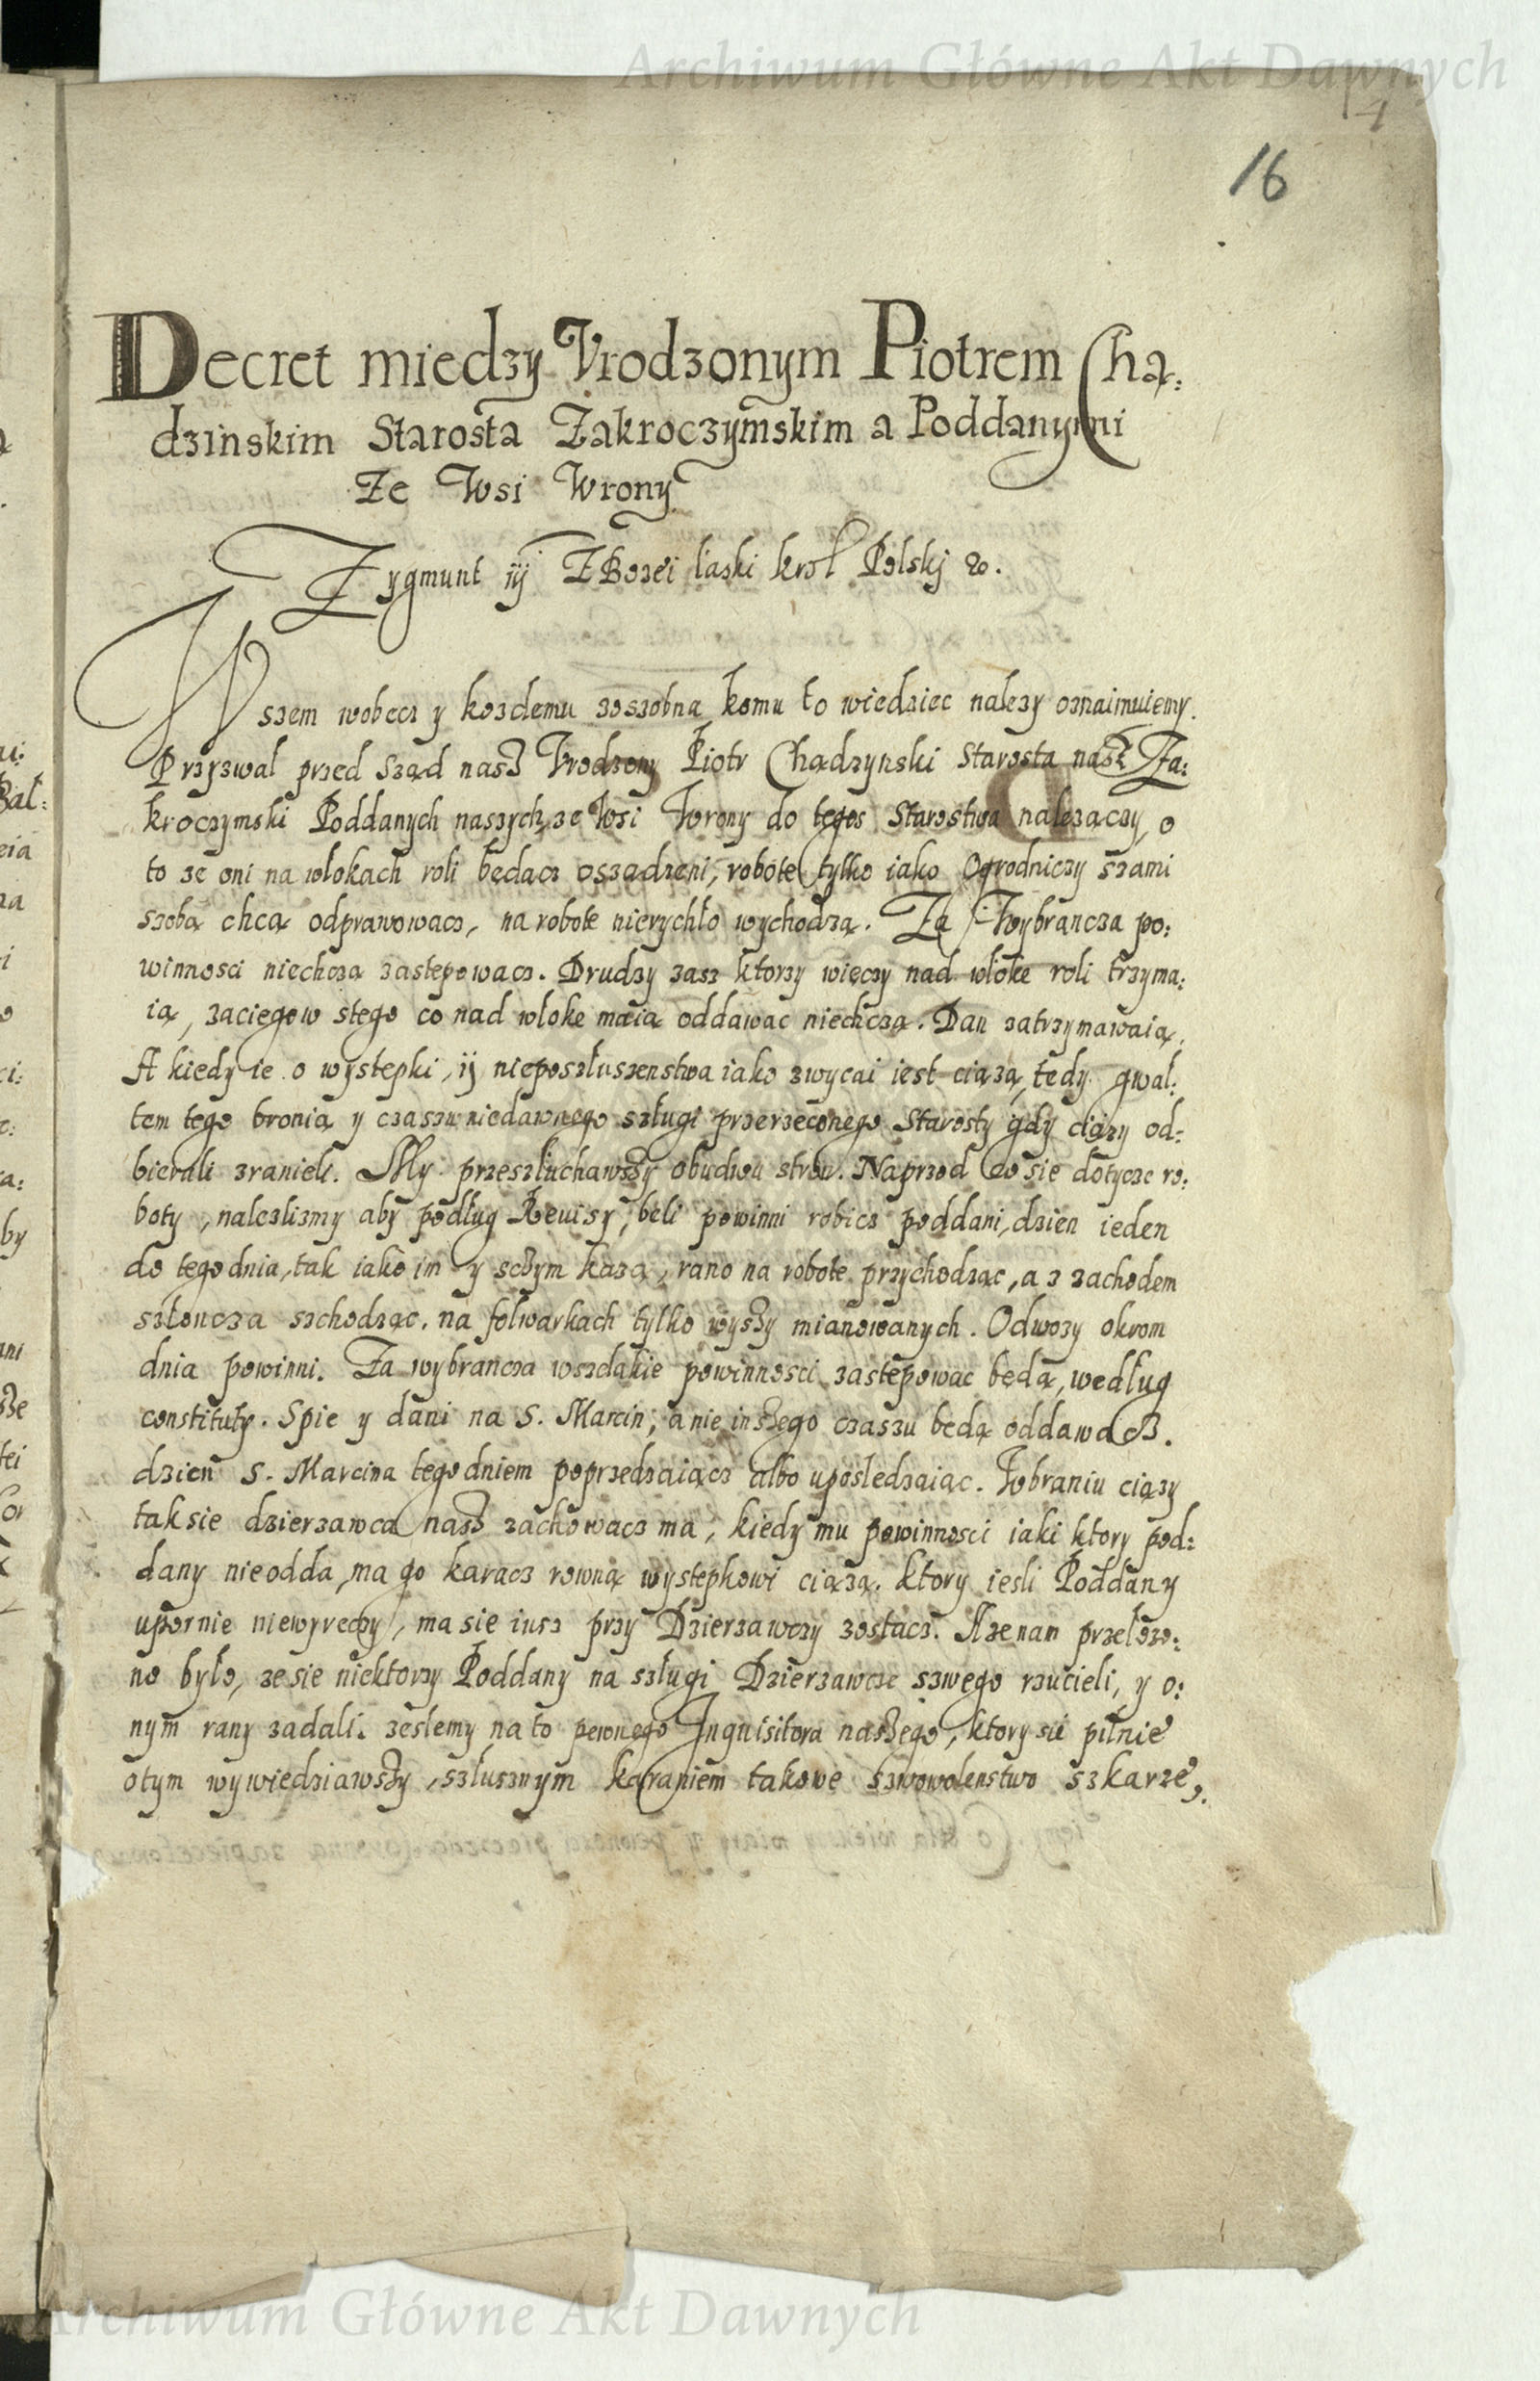 Archiwum Główne Akt Dawnych
16
Decret miedzy Vrodzonym Piotrem Chą:
dzinskim Starosta Zakroczymskim a Poddanymi
Ze Wsi Wrony
Zygmunt iij Z Bozei laski krol Polskj &.
Wszem wobecz y kozdemu zoszobna komu to wiedziec nalezy oznaimuiemy.
Przyzwal przed Sząd nasz Vrodzony Piotr Chądzynski Starosta nasz Za:
kroczymski Poddanych naszych ze Wsi Wrony do tegos Starostwa nalezączy, o
to ze oni na wlokach roli bedacz oszadzeni, robote tylko iako Ogrodniczy szami
szobą chcą odprawowacz, na robote nierychło wychodzą. Za Wybrancza po:
winnosci niechcza zastepowacz. Drudzy zasz ktorzy więczy nad wloke roli trzyma:
ią, zaciegow stego co nad wloke maią oddawac niechczą. Dan zatrzymawaią.
A kiedy ie o wystepki, ij nieposzluszenstwa iako zwycai iest ciązą, tedy gwal:
tem tego bronią y czaszu niedawnego szługi przerzeconego Starosty gdy ciązy od:
bierali zranieli. My przeszłuchawszy obudwu stron. Naprzod co sie dotycze ro:
boty, nalezlismy aby podlug Reuisy, beli powinni robicz poddani, dzien ieden
do tegodnia, tak iako im y sczym kazą, rano na robote przychodząc, a z zachodem
szłoncza szchodząc. na folwarkach tylko wyszy mianowanych. Odwozy okrom
dnia powinni. Za wybrancza wszelakie powinnosci zastepowac będą, według
constituty. Spie y dani na S. Marcin, a nie inszego czaszu będą oddawacz.
dzien S. Marcina tegodniem poprzedzaiącz albo uposledzaiąc. Wbraniu ciązy
tak sie dzierzawca nasz zachowacz ma, kiedy mu powinnosci iaki ktory pod:
dany nieodda, ma go karacz rowną wystepkowi ciązą. ktory iesli Poddany
upornie niewyreczy, ma sie iusz przy Dzierzawczy zostacz. A ze nam przelozo:
no było, ze sie niektorzy Poddany na szługi Dzierzawcze szwego rzucieli, y o:
nym rany zadali. zeslemy na to pewnego Inquisitora naszego, ktory sie pilnie
otym wywiedziawszy, szłusznym karaniem takowe szwowolenstwo szkarze,.
Archiwum Główne Akt Dawnych